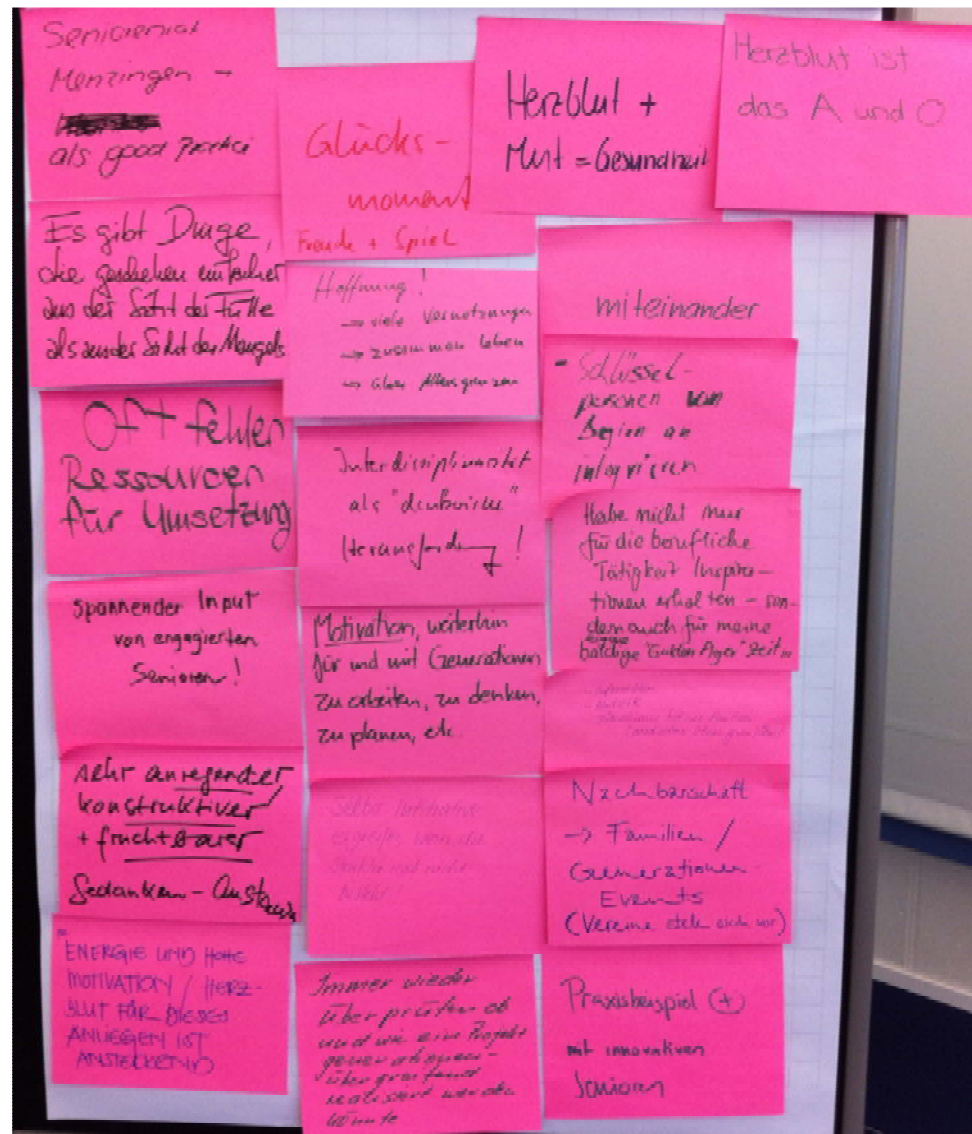 Seniorenrat
Menzingen –
als good Practice
Es gibt Dinge,
die geschehen einfacher
aus der Sicht der Fülle
als aus der Sicht des Mangels
Oft fehlen
Ressourcen
für Umsetzung
spannender Input
von engagierten
Senioren!
sehr anregender
konstruktiver/
+ fruchtbarer
Gedanken-Austausch
ENERGIE UND HOHE
MOTIVATION / HERZ-
BLUT FÜR DIESES
ANLIEGEN IST
ANSTECKEND
Glücks-
moment
Freude + Spiel
Hoffnung!
→ viele Vernetzungen
→ zusammen leben
→ über Altersgrenzen
Interdisziplinarität
als
Herausforderung!
Motivation, weiterhin
für und mit Generationen
zu arbeiten, zu denken,
zu planen, etc.
Selber Initiative
ergreifen wenn die
Immer wieder
überprüfen ob
und wie ein Projekt
generationen-
übergreifend
realisiert werden
könnte
Herzblut +
Mut = Gesundheit
Herzblut ist
das A und O
miteinander
- Schlüssel-
personen von
Beginn an
integrieren
Habe nicht nur
für die berufliche
Tätigkeit Inspira-
tionen erhalten – son-
dern auch für meine
baldige "Golden Ager" Zeit
Nachbarschaft
→ Familien /
Generationen-
Events
(Vereine stellen sich vor)
Praxisbeispiel (+)
mit innovativen
Senioren